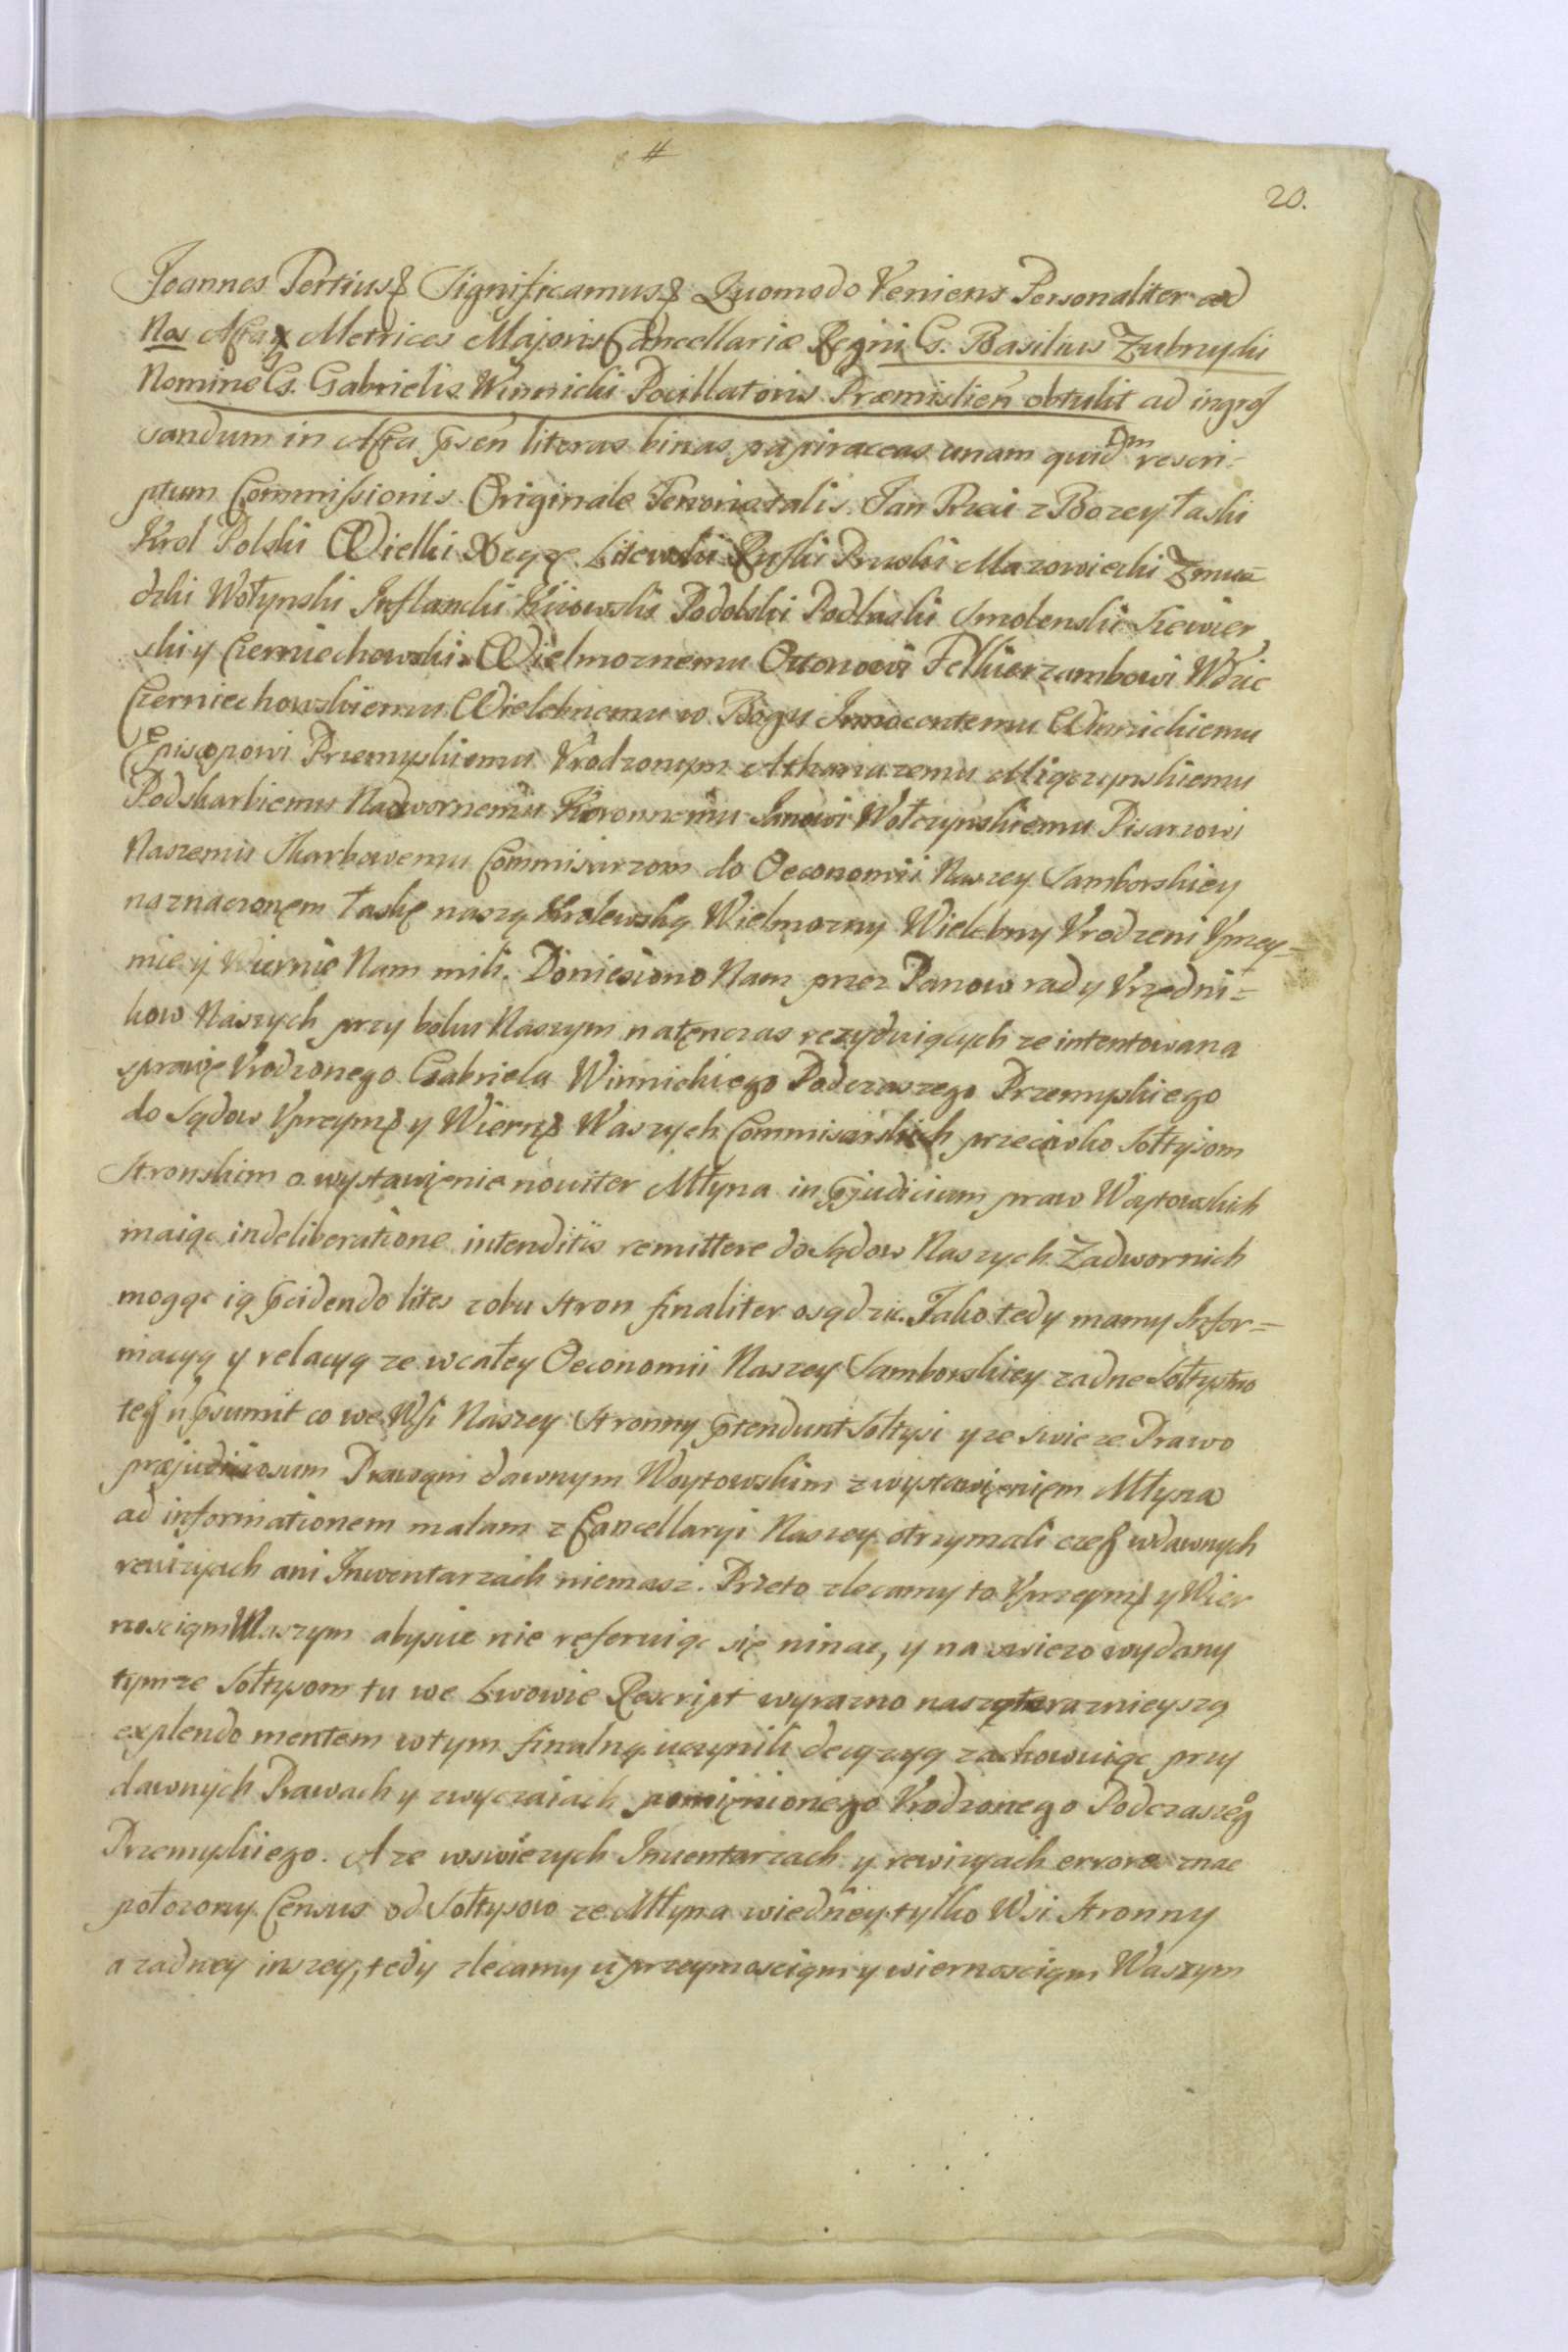 #
20.
Joannes Tertius Significamus Quomodo Veniens Personaliter ad
Nos Acta Metrices Majoris Cancellariæ Regni Gs. Basilius Zubrzycki
Nomine Gs. Gabrielis Winnicki Pocillatoris Præmislień obtulit ad ingros
sandum in Acta pseń literas binas papiraceas unam quidm rescri-
ptum Commissionis Originale Tenoris talis. Jan Trzci z Bozey Łaski
Krol Polski Wielki Xcyze Litewski Ruski Pruski Mazowiecki Zmuc
dzki Wołynski Inflancki Kiiowski Podolski Podlaski Smolenski Siewier
ski y Czerniechowski. Wielmoznemu Ottonowi Felkierzambowi Wdzie
Czerniechowskiemu Wielebnemu w Bogu Innocentemu Winnickiemu
Episcopowi Przemyskiemu Vrodzonym Athanazemu Miączynskiemu
Podskarbiemu Nadwornemu Koronnemu Janowi Wołczynskiemu Pisarzowi
Naszemu Skarbowemu Commisarzom do Oeconomii Naszey Samborskiey
naznaczonęm łaskę naszą Krolewską Wielmozny Wielebny Vrodzeni Vprzey=
mie y Wiernie Nam mili. Doniesiono Nam przez Panow rad y Vrzędni=
kow Naszych przy boku Naszym natęnczas rezyduiących ze intentowana
sprawę Vrodzonego Gabriela Winnickiego Podczaszego Przemyskiego
do Sądow Vprzym y Wiern Waszych Commisarskich przeciwko Sołtysom
Stronskim o wystawięnie nowiter Młyna in pjudicium praw Woytowskich
maiąc in deliberatione intenditis remittere do Sądow Naszych Zadwornich
mogąc ią pcidendo lites zobu stron finaliter osądzic. Jako tedy mamy Infor=
macyą y relacyą ze wcałey Oeconomii Naszey Samborskiey zadne Sołtystwo
teg ń psumit co we Wsi Naszey Stronny ptendunt Sołtysi y ze swieze Prawo
præjudiciosum Prawęm dawnym Woytowskim z wystawięnięm Młyna
ad informationem malam z Cancellaryi Naszey otrzymali czeg wdawnych
rewizyach ani Inwentarzach niemasz. Przeto zlecamy to Vprzeym y Wier
nosciąm Waszym abyscie nie referuiąc się ninac, y na swiezo wydany
tymze Sołtysom tu we Lwowie Rescript wyrazno naszą teraznieyszą
explendo mentem wtym finalną uczynili decyzyą zachowuiąc przy
dawnych Prawach y zwyczaiach pomięnionego Vrodzonego Podczaszeg
Przemyskiego. A ze wswiezych Inwentarzach y rewizyach errore znac
połozony Census od Sołtysow ze Młyna wiedney tylko Wsi Stronny
a zadney inszey, tedy zlecamy uprzeymosciąm y wiernosciąm Waszym